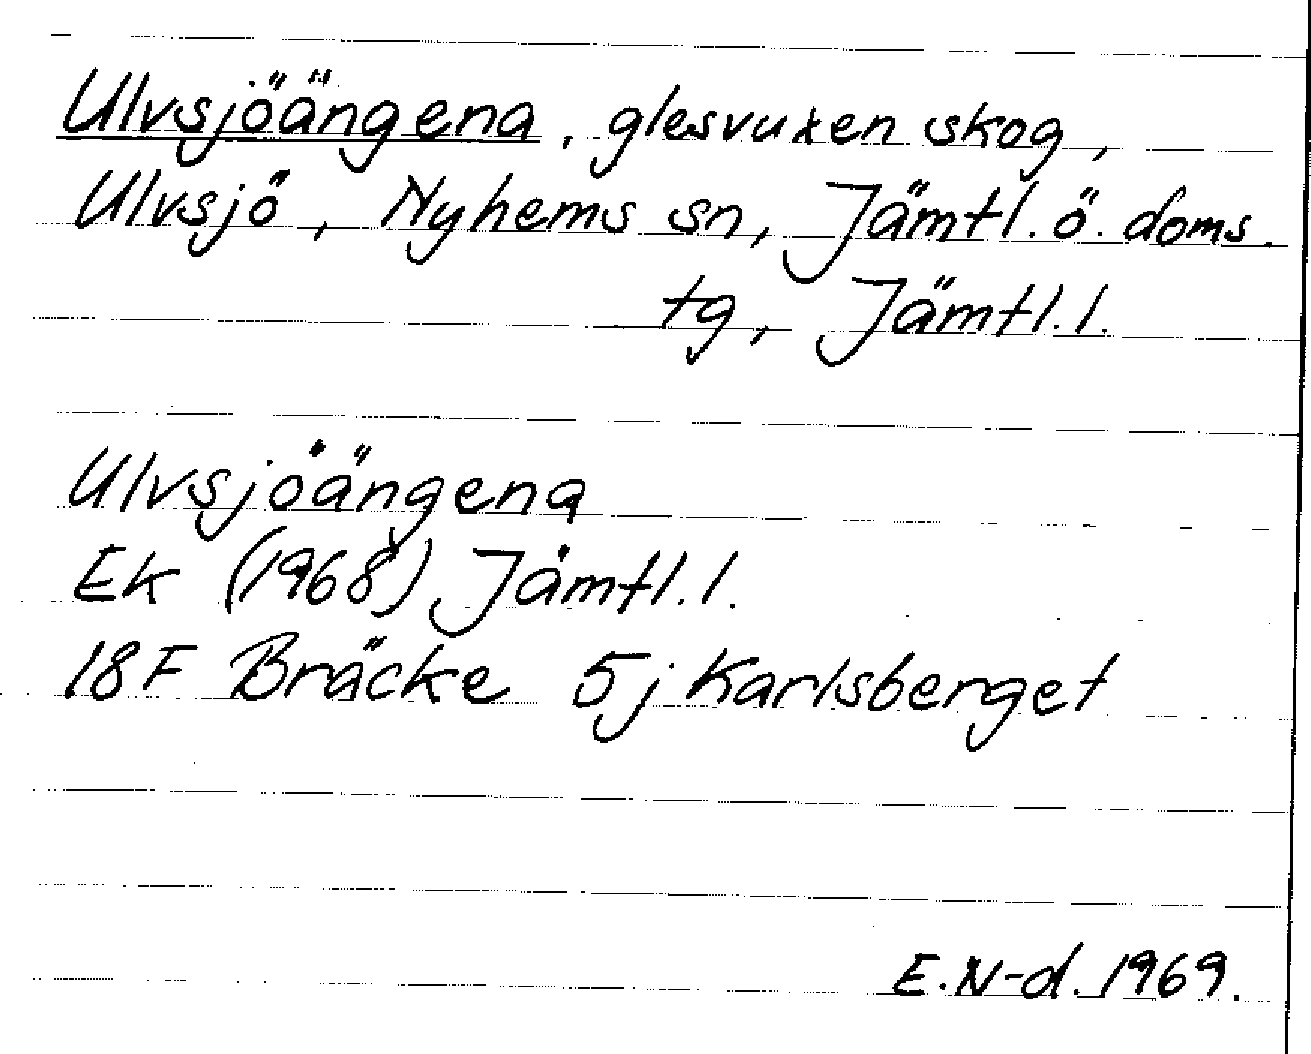 Ulvsjöängena, glesvuxen skog,
Ulvsjö, Nyhems sn, Jämtl. ö. doms.
tg, Jämtl. l.
Ulvsjöängena
Ek (1968) Jämtl. l.
18F Bräcke 5j Karlsberget
E.N-d. 1969.